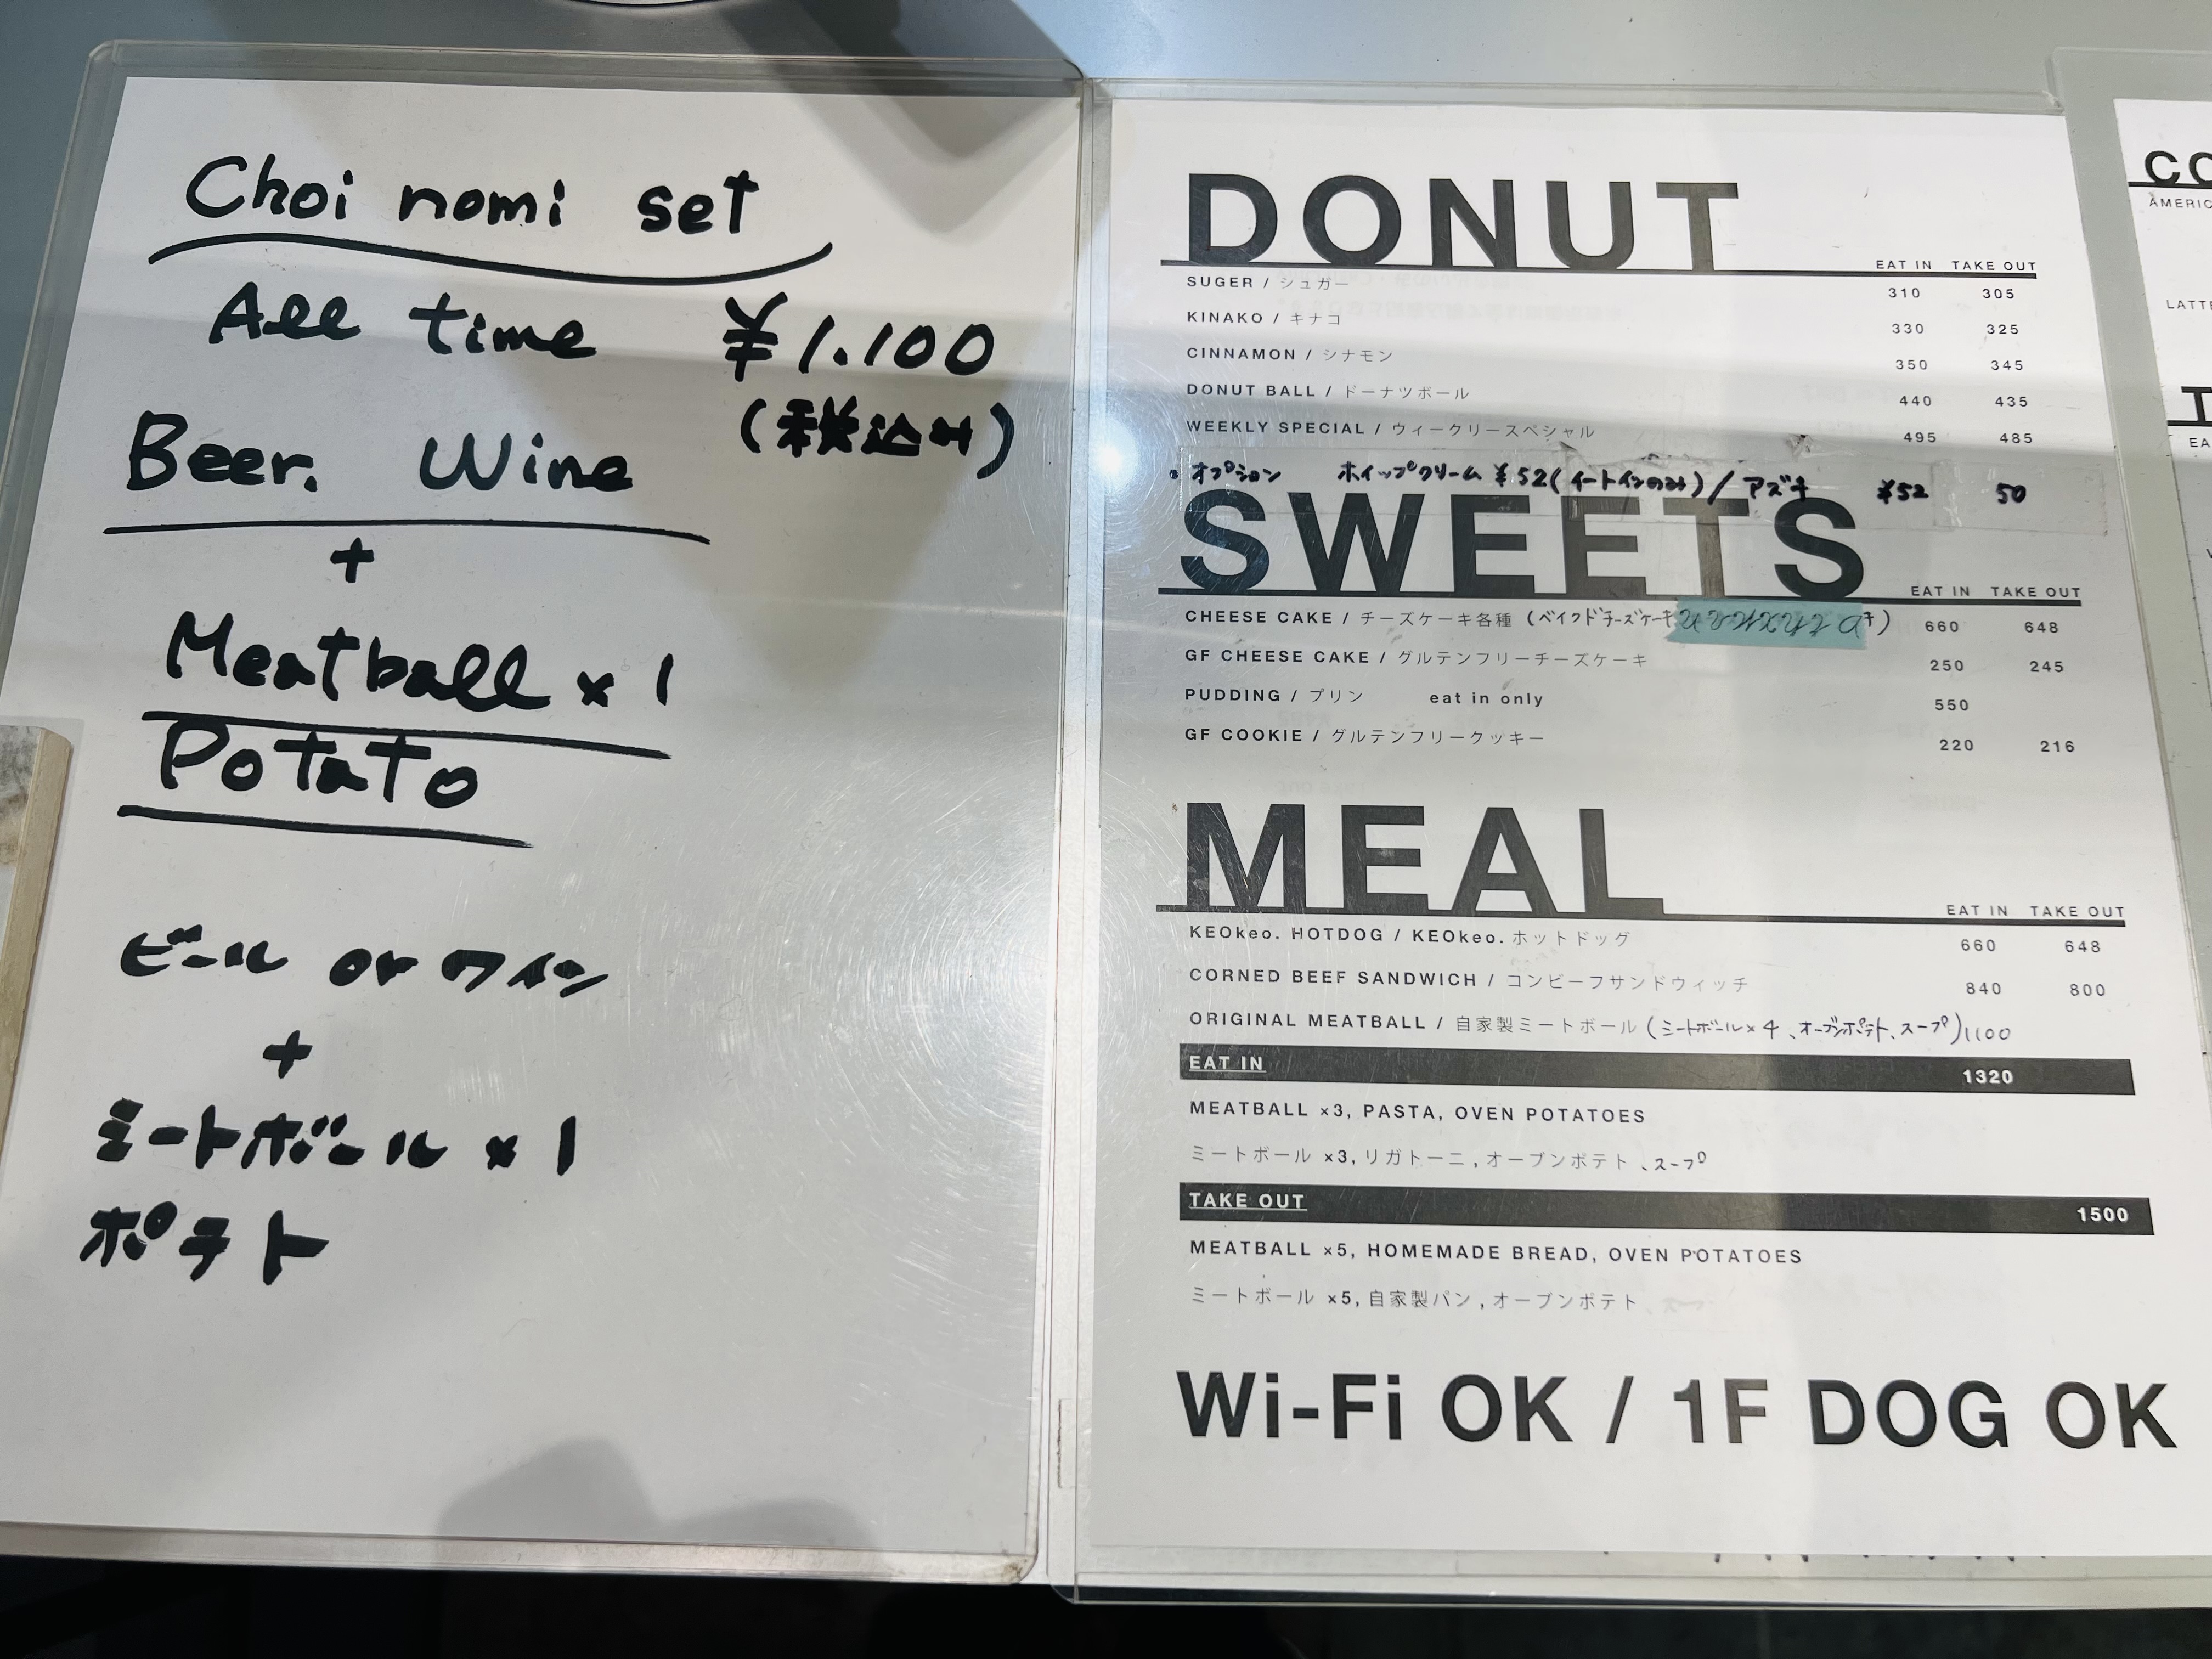 Choi nomi set
All time ¥1.100
(税込み)
Beer. Wine
+
Meatball × 1
Potato
ビール or ワイン
+
ミートボール × 1
ポテト
DONUT
EAT IN TAKE OUT
SUGER / シュガー 310 305
KINAKO / キナコ 330 325
CINNAMON / シナモン 350 345
DONUT BALL / ドーナツボール 440 435
WEEKLY SPECIAL / ウィークリースペシャル 495 485
・オプション ホイップクリーム ¥52(イートインのみ) / アズキ ¥52 50
SWEETS
EAT IN TAKE OUT
CHEESE CAKE / チーズケーキ各種 (ベイクドチーズケーキ ) 660 648
GF CHEESE CAKE / グルテンフリーチーズケーキ 250 245
PUDDING / プリン eat in only 550
GF COOKIE / グルテンフリークッキー 220 216
MEAL
EAT IN TAKE OUT
KEOkeo. HOTDOG / KEOkeo. ホットドッグ 660 648
CORNED BEEF SANDWICH / コンビーフサンドウィッチ 840 800
ORIGINAL MEATBALL / 自家製ミートボール (ミートボール×4、オーブンポテト、スープ) 1100
EAT IN 1320
MEATBALL ×3, PASTA, OVEN POTATOES
ミートボール ×3, リガトーニ, オーブンポテト、スープ
TAKE OUT 1500
MEATBALL ×5, HOMEMADE BREAD, OVEN POTATOES
ミートボール ×5, 自家製パン, オーブンポテト
Wi-Fi OK / 1F DOG OK